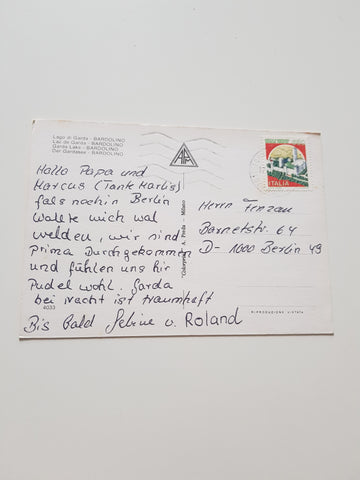 Lago di Garda - BARDOLINO
Lac de Garda - BARDOLINO
Garda Lake - BARDOLINO
Der Gardasee - BARDOLINO
Hallo Papa und
Marcus (Tank Harlis)
fals noch in Berlin
Wollte mich mal
melden, wir sind
Prima Durchgekommen
und fühlen uns hir
Pudel wohl. Garda
bei Nacht ist traumhaft
Bis Bald Sabine u. Roland
4033
"Colorprint" A. Preda - Milano
ITALIA
Herrn Fenzau
Barnetstr. 64
D- 1000 Berlin 49
RIPRODUZIONE VIETATA